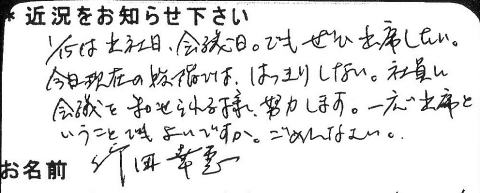 * 近況をお知らせ下さい
1/15は出社日、会議日。でもぜひ出席したい。
今日現在の状態では、はっきりしない。社員に
会議をまかせられる様、努力します。一応出席と
いうことでもよいですか。ごめんなさい。
お名前 田幸恵